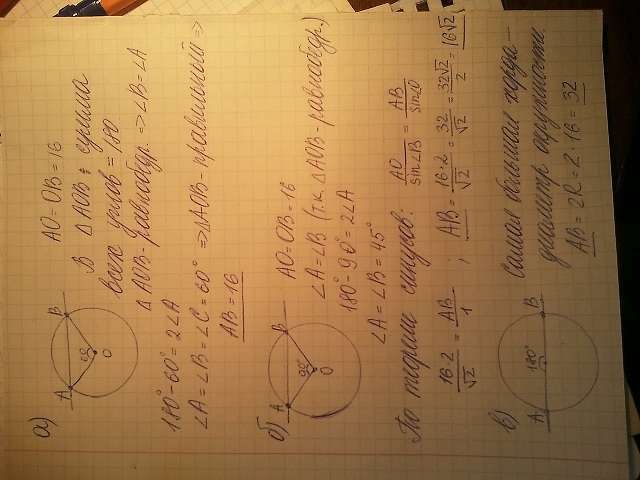 а)
A
B
60°
O
AO = OB = 16
В △ AOB : сумма
всех углов = 180
△ AOB - равнобдр. => ∠B = ∠A
180° - 60° = 2∠A
∠A = ∠B = ∠C = 60° => △AOB - правильный =>
AB = 16
б)
A
B
90°
O
AO = OB = 16
∠A = ∠B (т.к. △AOB - равнобдр.)
180° - 90° = 2∠A
∠A = ∠B = 45°
По теореме синусов: AO/sin∠B = AB/sin∠O
16·2/√2 = AB/1 ; AB = 16·2/√2 = 32/√2 = 32√2/2 = 16√2
в)
A
B
180°
Самая большая хорда -
диаметр окружности.
AB = 2R = 2·16 = 32